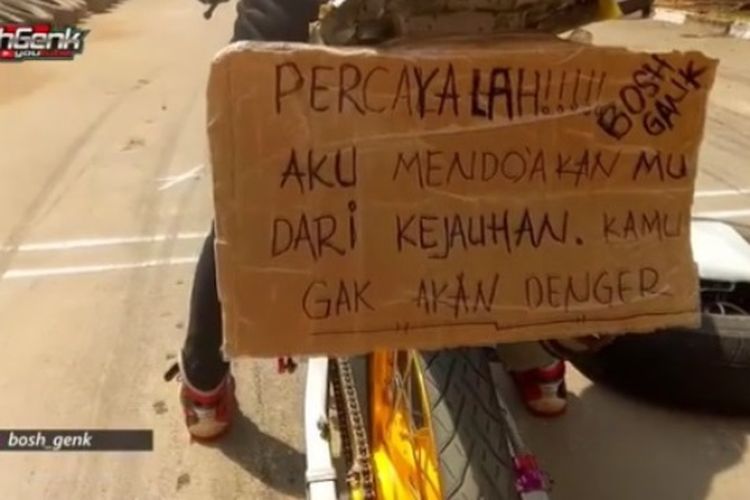 hGenk
youtube
PERCAYALAH!!!!!
BOSH
GANK
AKU MENDO'AKAN MU
DARI KEJAUHAN. KAMU
GAK AKAN DENGER
bosh_genk